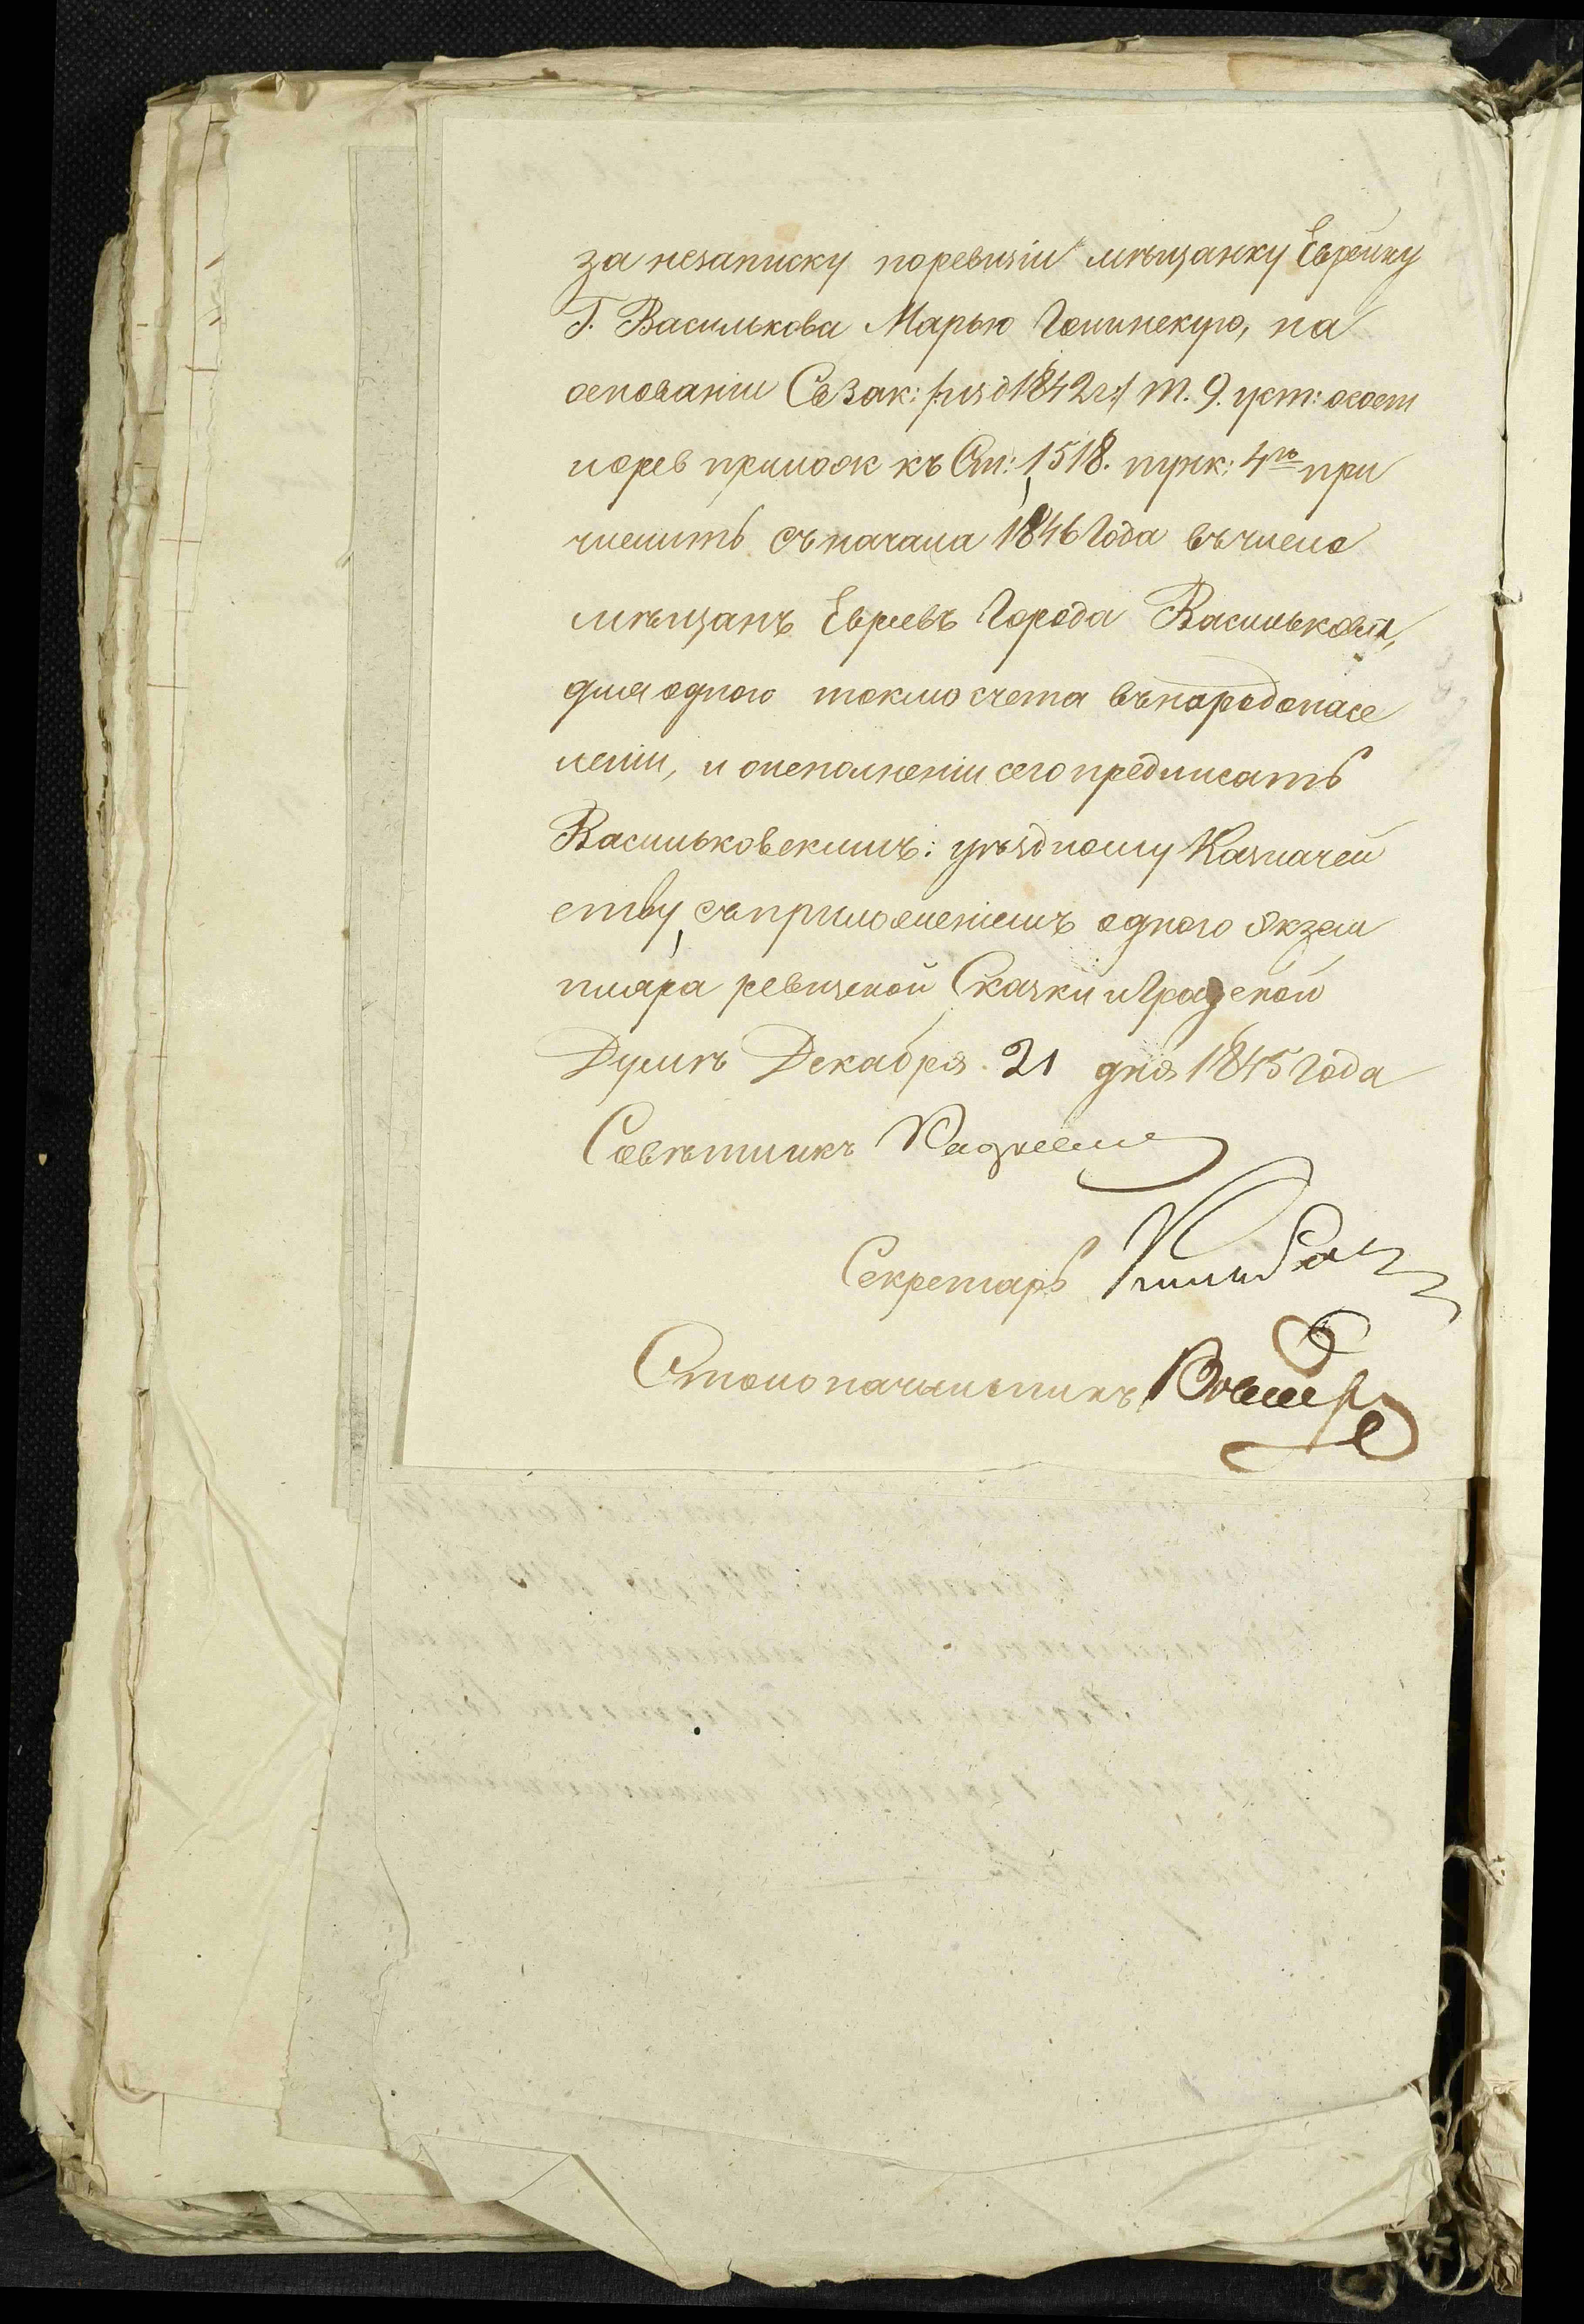 за незаписку поревизіи мѣщанку Еврейку
Г. Василькова Марью Голинскую, на
основаніи Св Зак: /:изд 1842 г:/ Т. 9. уст: осост
иорев прилож къ Ст: 1518. пунк: 4мъ при
числить съ начала 1846 Года въ число
мѣщанъ Евреевъ Города Василькова,
для одного токмо счета въ народонасе
леніи, и о исполненіи сего предписать
Васильковскимъ: уѣздному Казначей
ству, съ приложеніемъ одного Экзем
пляра ревизской Сказки и Градской
Думѣ Декабря 21 дня 1845 Года
Совѣтникъ
Секретарь
Столоначальникъ